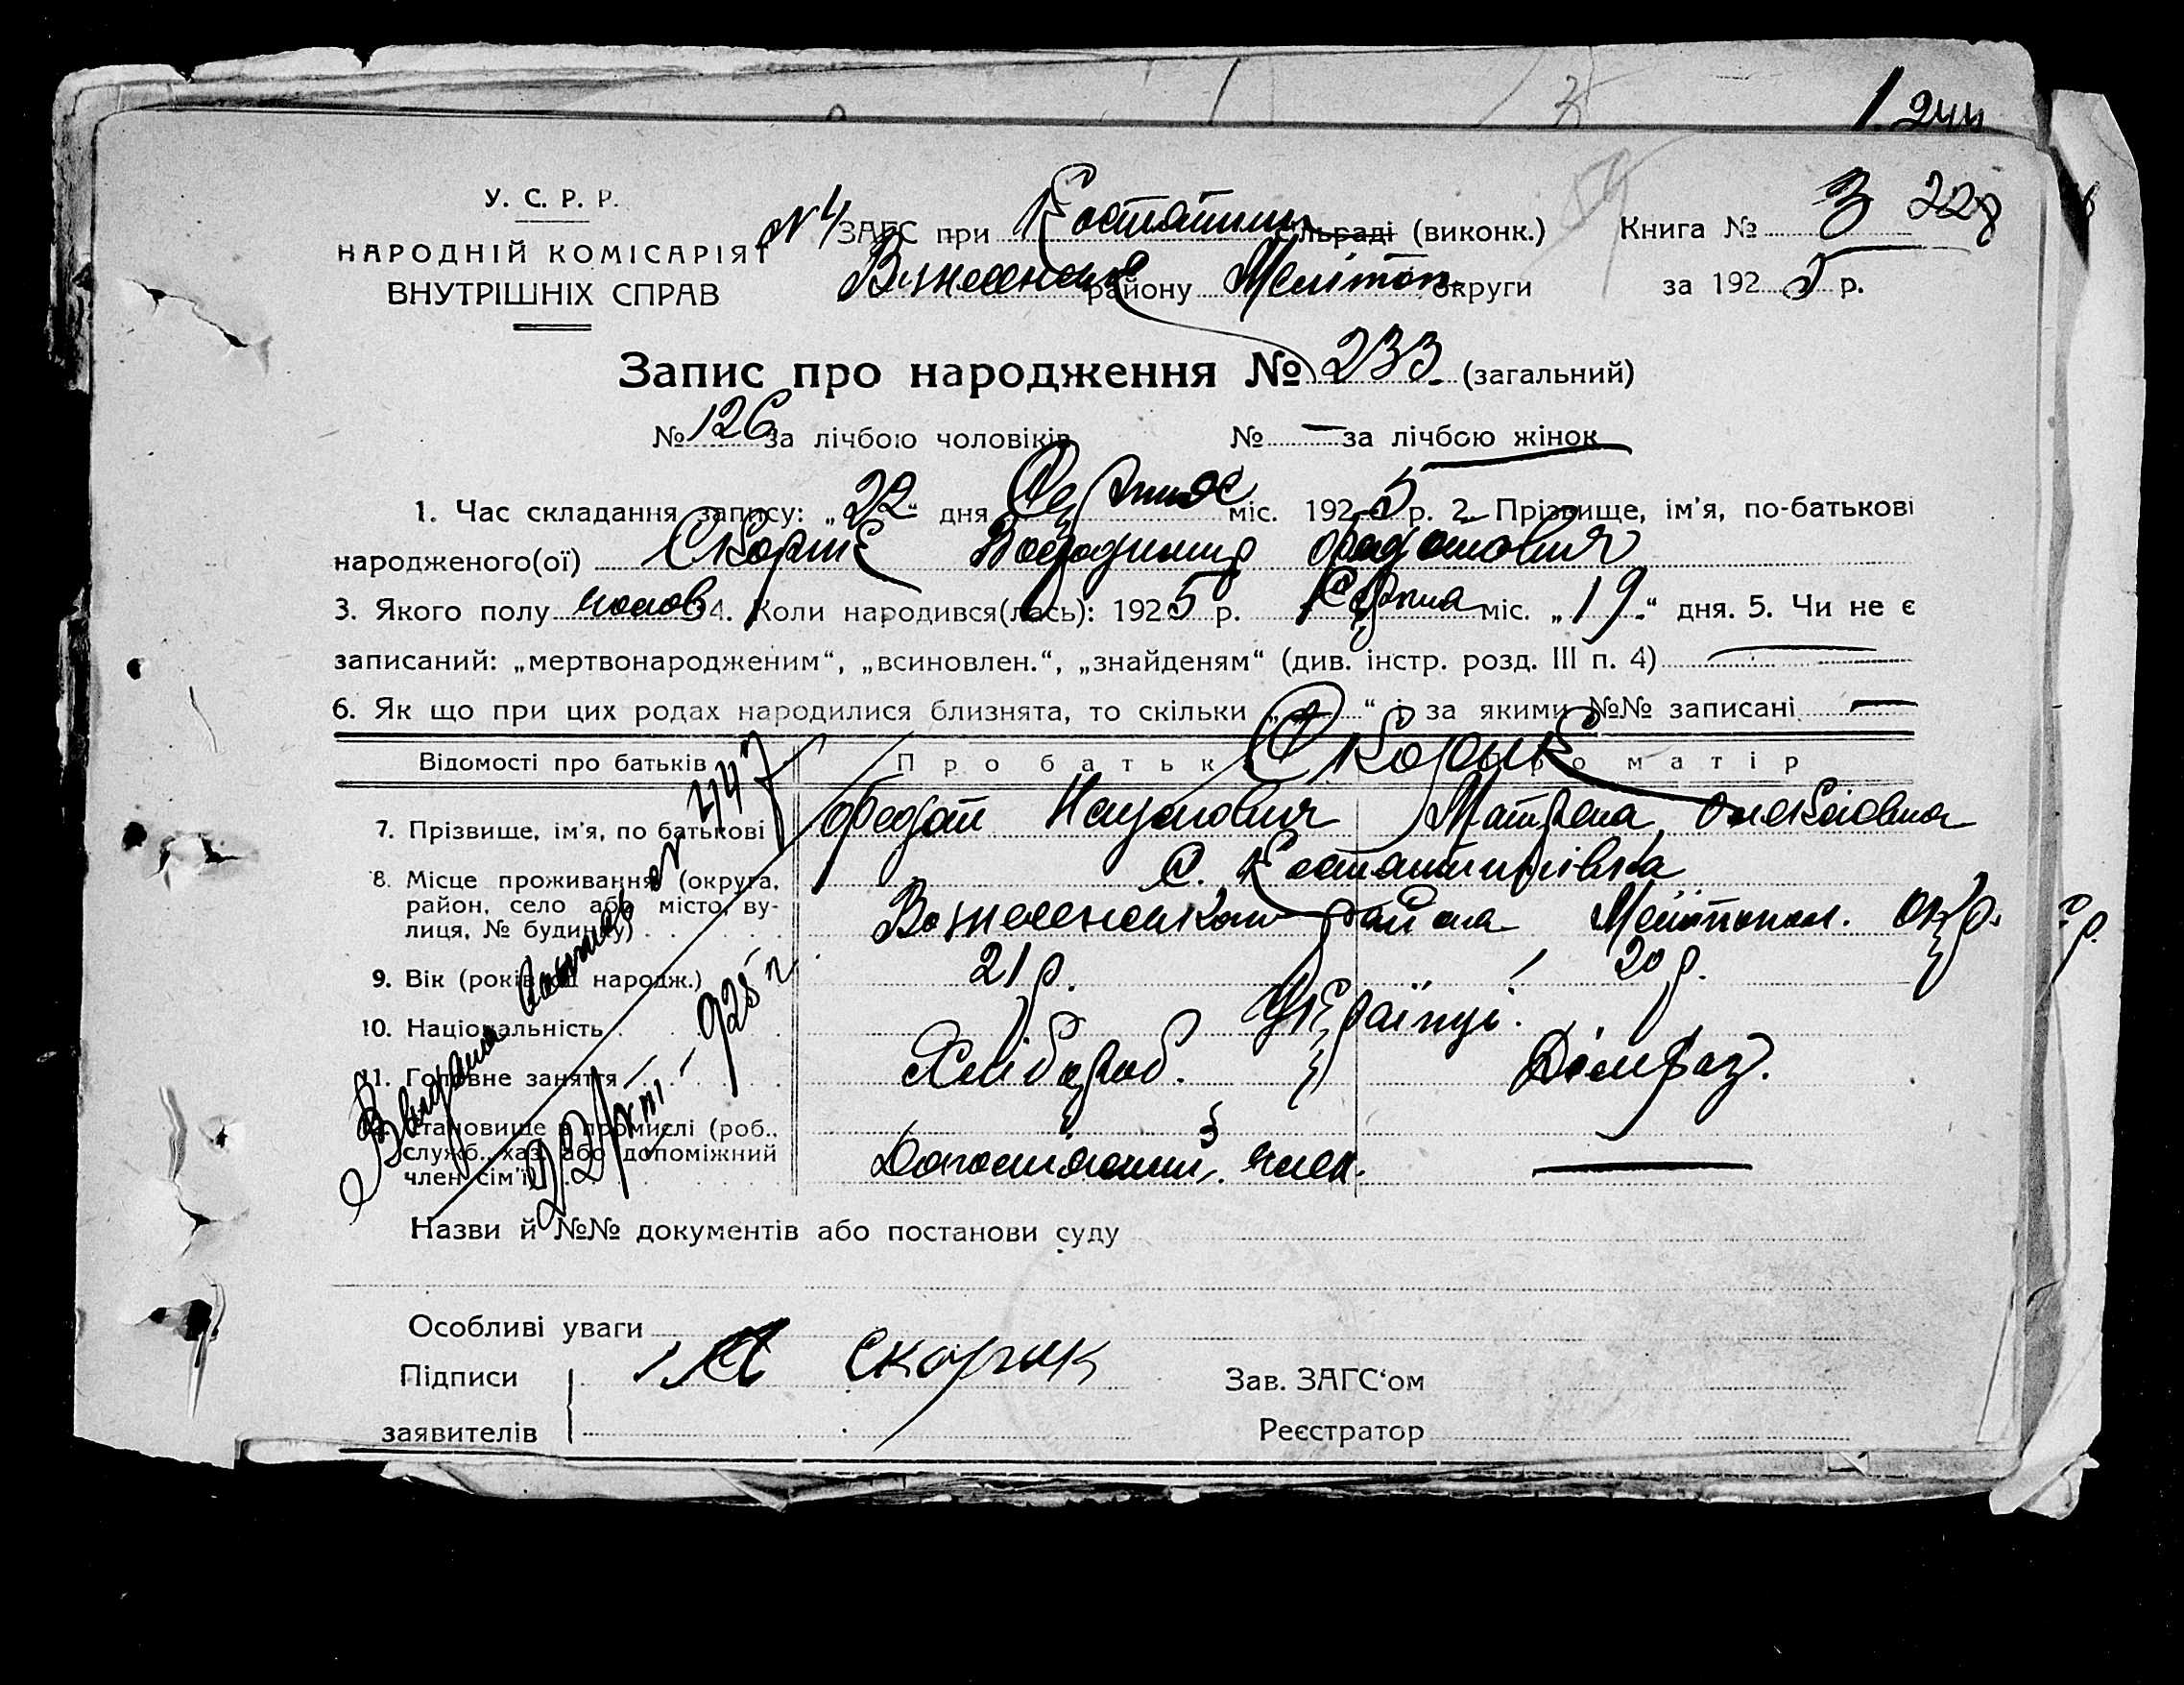 1244
У. С. Р. Р.
НАРОДНІЙ КОМІСАРІЯТ
ВНУТРІШНІХ СПРАВ
№4 ЗАГС при Костатин сільраді (виконк.)
Вознесенськ району Мелітоп округи
Книга № 3 228
за 1925 р.
59
Запис про народження № 233 (загальний)
№ 126 за лічбою чоловіків № — за лічбою жінок
1. Час складання запису: „22“ дня Серпня міс. 1925 р. 2. Прізвище, ім'я, по-батькові
народженого(ої) Скорик Володимир Федотович
3. Якого полу чолов 4. Коли народився(лась): 1925 р. Серпня міс. „19“ дня. 5. Чи не є
записаний: „мертвонародженим“, „всиновлен.“, „знайденям“ (див. інстр. розд. III п. 4) —
6. Як що при цих родах народилися близнята, то скільки „—“ і за якими №№ записані —
Відомості про батьків Про батьк Про матір
Скорик
7. Прізвище, ім'я, по батькові Федот Наумович Матрена Олексіовна
8. Місце проживання (округа, район, село або місто, вулиця, № будинку)
С. Костантинівка
Вознесенськом района Мелітопол. окр.
9. Вік (років од народж.) 21 р. 20 р.
10. Національність Українці
11. Головне заняття Хлібороб. Домраз.
12. Становище в промислі (роб., служб., хаз. або допоміжний член сім'ї) член. —
Выдана 2147
22/VIII – 925 г.
Назви й №№ документів або постанови суду
Особливі уваги
Підписи
заявителів
Скорик
Зав. ЗАГС'ом
Реєстратор